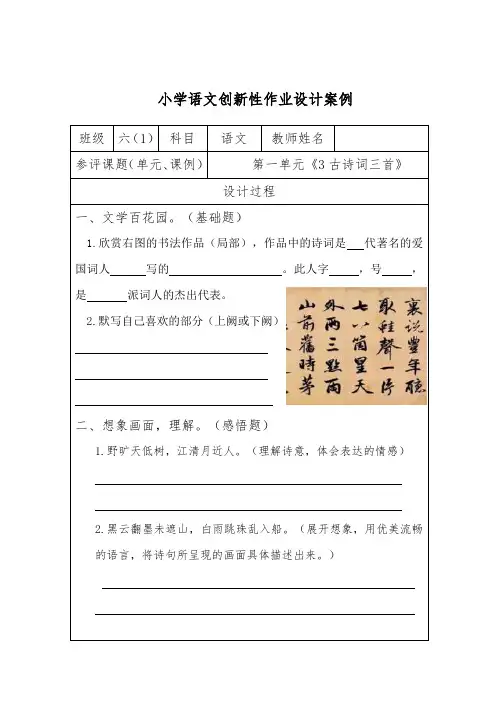 小学语文创新性作业设计案例
班级 六（1） 科目 语文 教师姓名
参评课题（单元、课例） 第一单元《3 古诗词三首》
设计过程
一、文学百花园。（基础题）
1.欣赏右图的书法作品（局部），作品中的诗词是 代著名的爱
国词人 写的 。此人字 ，号 ，
是 派词人的杰出代表。
2.默写自己喜欢的部分（上阙或下阙）
裏說豐年聽
取蛙聲一片
七八箇星天
外兩三點雨
山前舊時茅
二、想象画面，理解。（感悟题）
1.野旷天低树，江清月近人。（理解诗意，体会表达的情感）
2.黑云翻墨未遮山，白雨跳珠乱入船。（展开想象，用优美流畅
的语言，将诗句所呈现的画面具体描述出来。）